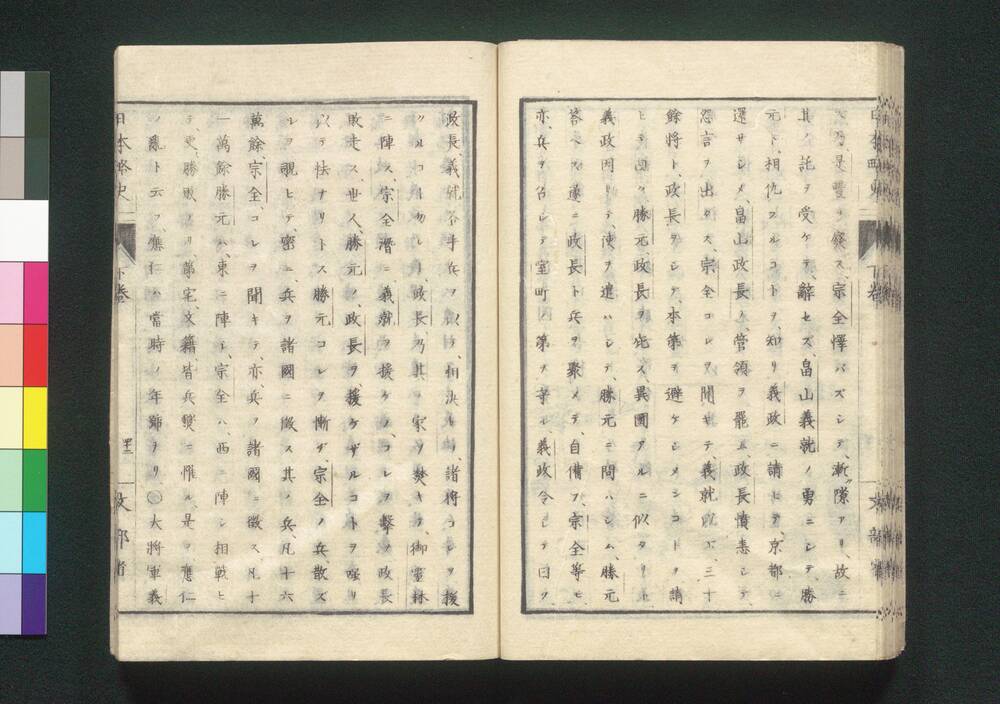 是豊ヲ窺ス、宗全懌バズシテ、漸隙アリ、故ニ
其ノ託ヲ受ケテ、辭セズ、畠山義就ノ勇ニシテ勝
元ト、相仇スルコトヲ、知リ、義政ニ請ヒテ、京都ニ
還サシメ、畠山政長ノ、管領ヲ罷ム、政長憤恚シテ、
怨言ヲ出タス、宗全コレヲ聞キテ、義就以下、三十
餘將ト、政長ヲシテ、本第ヲ避ケシメンコトヲ請
ヒテ曰ク、勝元、政長ヲ庇ス、異圖アルニ似タリト、
義政因リテ、使ヲ遣ハシテ、勝元ニ問ハシム、勝元
答ヘズ、遂ニ政長ト兵ヲ聚メテ、自備フ、宗全等モ
亦、兵ヲ召シテ室町第ヲ守ル、義政令シテ曰ク、
政長義就各手兵ヲ以テ、相決セヨ、諸將コレヲ援
クルコト勿レト、政長、乃其ノ家ヲ焚キテ、御靈林
ニ陣ス、宗全潛ニ、義就ヲ援ケテ、コレヲ撃ツ、政長
敗走ス、世人、勝元ノ、政長ヲ、援ケザルコトヲ、嗤リ
以テ怯ナリトス、勝元コレヲ慚ヂ、宗全ノ兵、散ズ
ルヲ覘ヒテ、密ニ、兵ヲ諸國ニ徴ス、其ノ兵、凡十六
萬餘、宗全、コレヲ聞キテ、亦兵ヲ諸國ニ徴ス、凡十
一萬餘、勝元ハ、東ニ陣シ、宗全ハ、西ニ陣シ、相戰ヒ
テ、更、勝敗アリ、第宅、文籍、皆兵燹ニ罹ル、是ヲ應仁
ノ亂ト云フ、應仁ハ、當時ノ年號ナリ、○大將軍義
日本略史 下卷 四十二 文部省